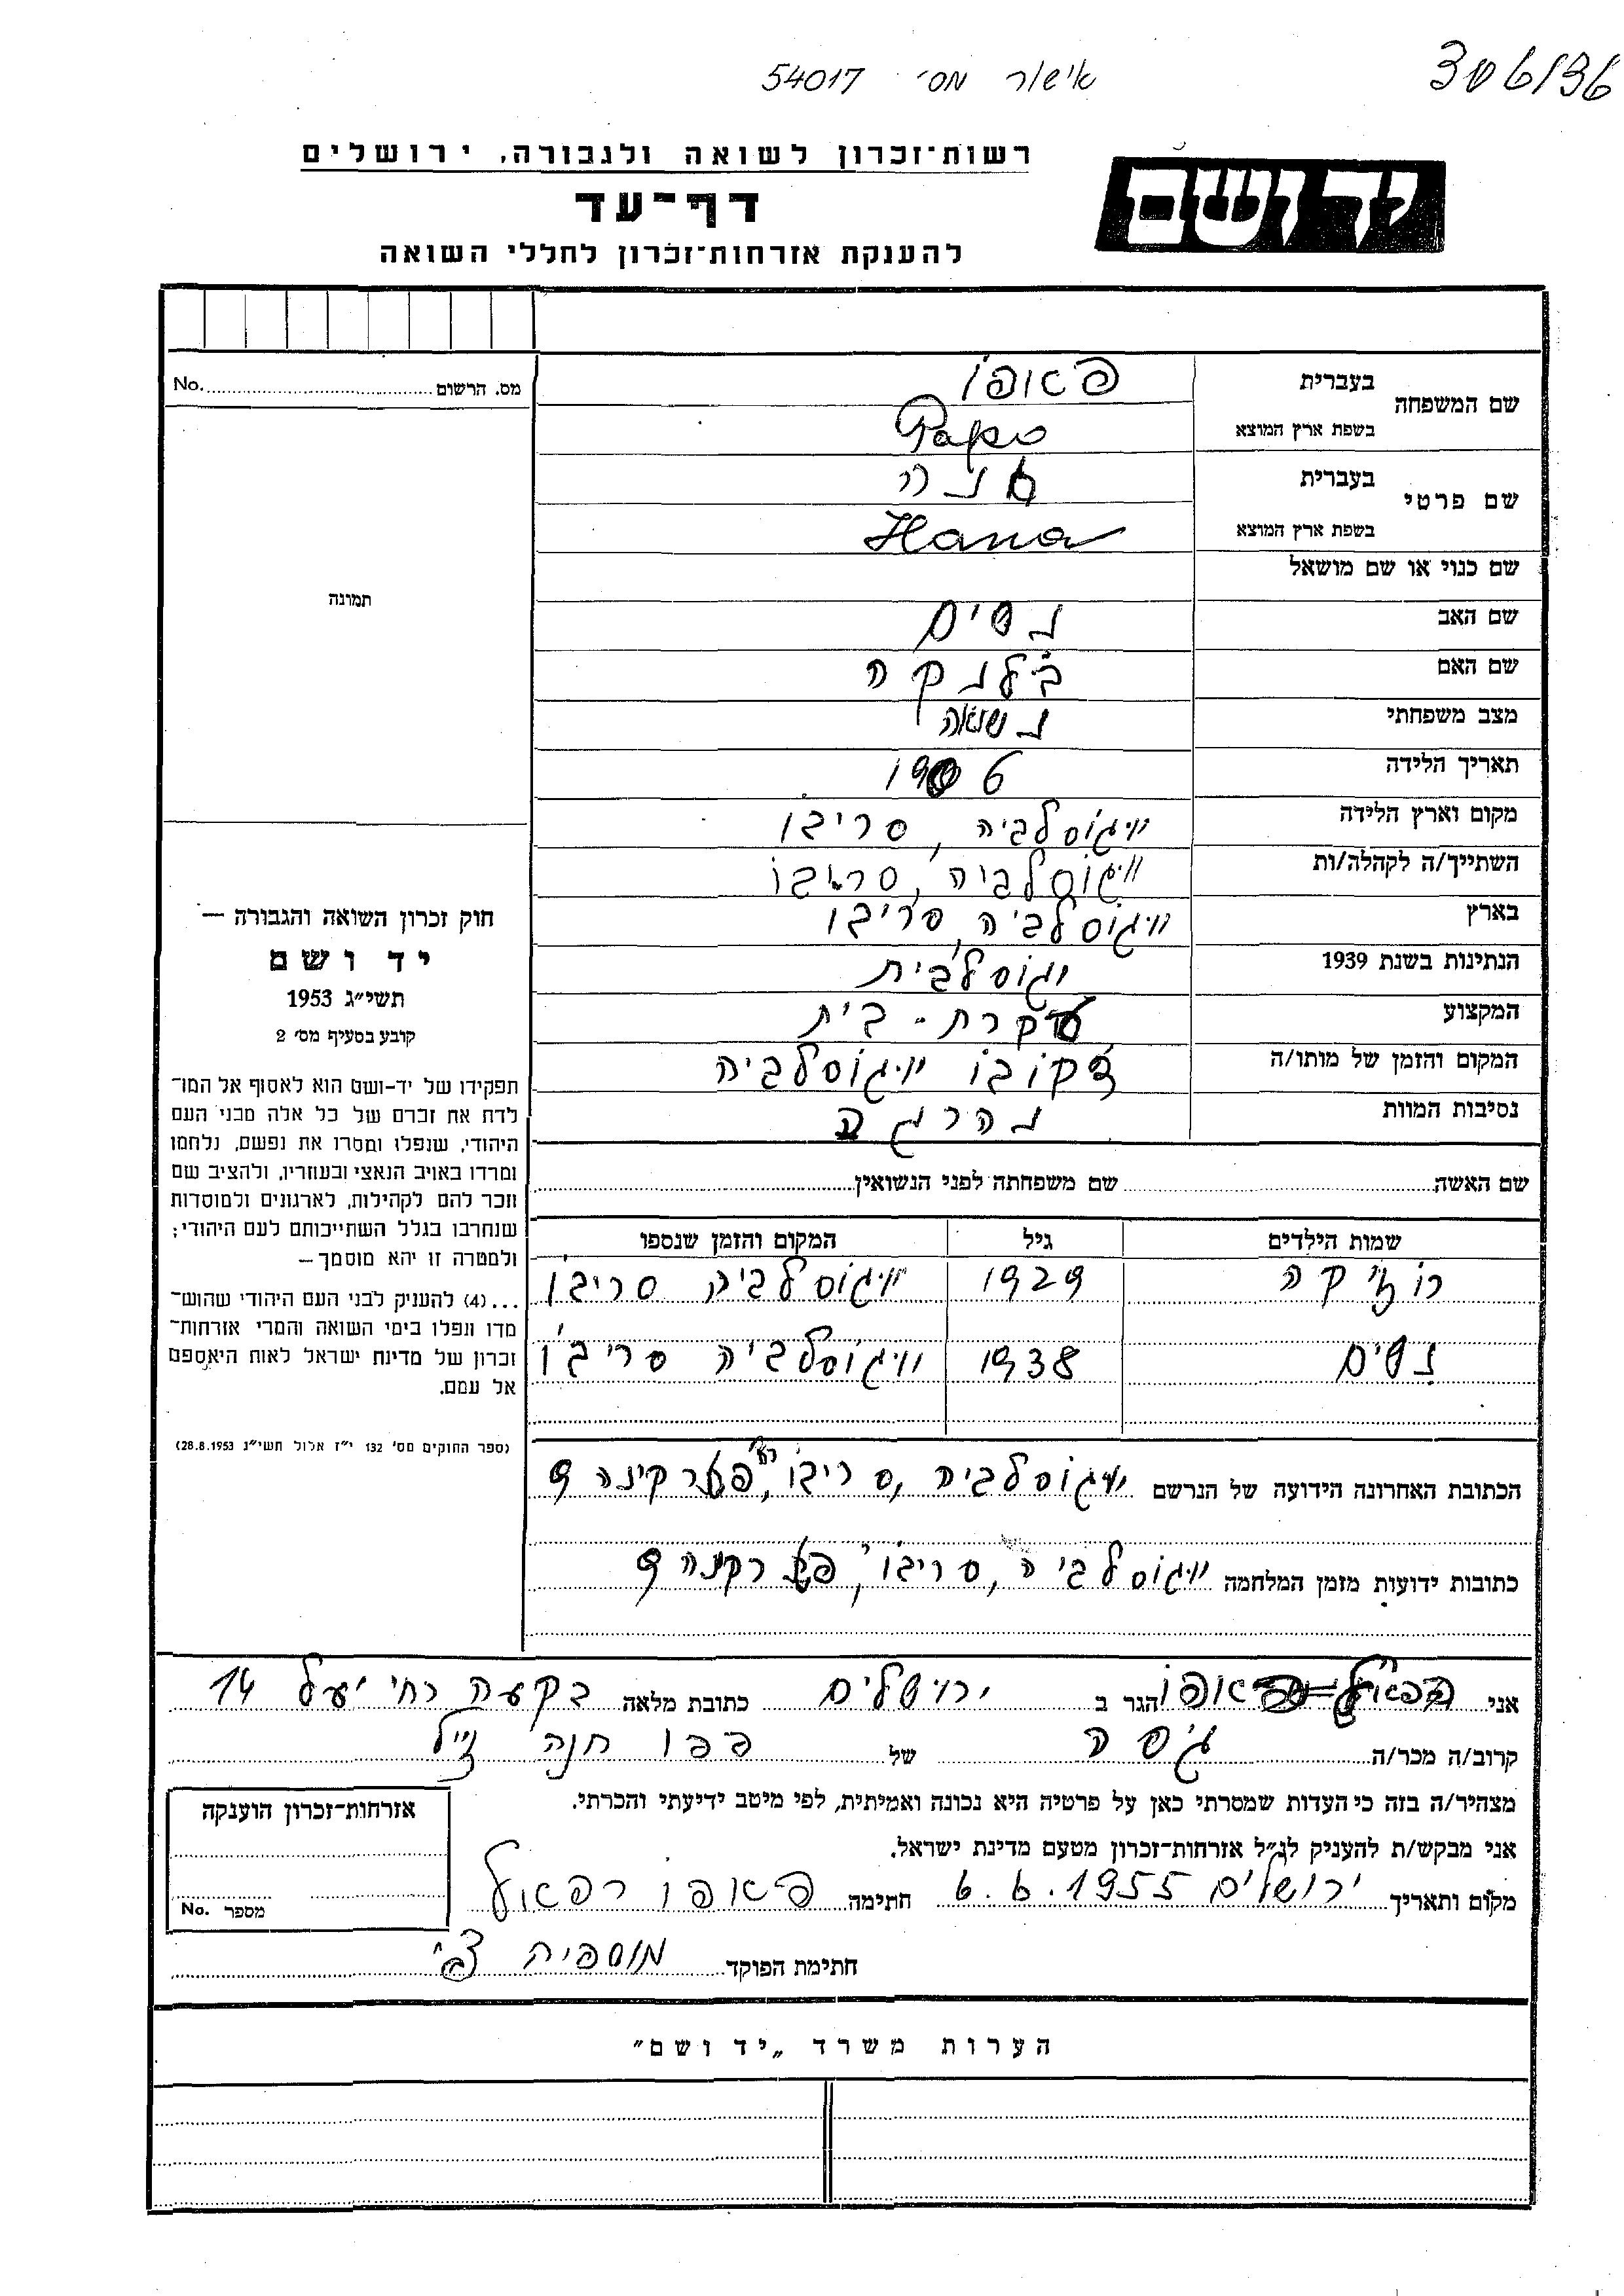 306/36
אישור מס׳ 54017
יד ושם
רשות־זכרון לשואה ולגבורה, ירושלים
דף־עד
להענקת אזרחות־זכרון לחללי השואה
מס. הרשום No.
תמונה
שם המשפחה בעברית פאפו
בשפת ארץ המוצא Papo
שם פרטי בעברית
בשפת ארץ המוצא Hana
שם כנוי או שם מושאל
שם האב נסים
שם האם בלנקה
מצב משפחתי נשואה
תאריך הלידה 1906
מקום וארץ הלידה יוגוסלביה, סריבו
השתייך/ה לקהלה/ות יוגוסלביה, סריבו
בארץ יוגוסלביה סריבו
הנתינות בשנת 1939 יגוסלבית
המקצוע עקרת-בית
המקום והזמן של מותו/ה יוגוסלביה
נסיבות המוות נהרגה
שם האשה שם משפחתה לפני הנשואין
שמות הילדים גיל המקום והזמן שנספו
רוזיקה 1929 יוגוסלביה סריבו
נסים 1938 יוגוסלביה סריבו
הכתובת האחרונה הידועה של הנרשם יוגוסלביה, סריבו, 9
כתובות ידועות מזמן המלחמה יוגוסלביה, סריבו, 9
חוק זכרון השואה והגבורה —
יד ושם
תשי״ג 1953
קובע בסעיף מס׳ 2
תפקידו של יד-ושם הוא לאסוף אל המו־
לדת את זכרם של כל אלה מבני העם
היהודי, שנפלו ומסרו את נפשם, נלחמו
ומרדו באויב הנאצי ובעוזריו, ולהציב שם
וזכר להם לקהילות, לארגונים ולמוסדות
שנחרבו בגלל השתייכותם לעם היהודי;
ולמטרה זו יהא מוסמך —
...(4) להעניק לבני העם היהודי שהוש־
מדו ונפלו בימי השואה והמרי אזרחות־
זכרון של מדינת ישראל לאות היאספם
אל עמם.
(ספר החוקים מס׳ 132 י״ז אלול תשי״ג 28.8.1953)
אני פאפו הגר ב ירושלים כתובת מלאה בקעה רח׳ יעל 14
קרוב/ה מכר/ה גיסה של פפו חנה ז״ל
מצהיר/ה בזה כי העדות שמסרתי כאן על פרטיה היא נכונה ואמיתית, לפי מיטב ידיעתי והכרתי.
אני מבקש/ת להעניק לנ״ל אזרחות־זכרון מטעם מדינת ישראל.
מקום ותאריך ירושלים 6.6.1955 חתימה פאפו רפאל
חתימת הפוקד מוספיה צבי
אזרחות־זכרון הוענקה
מספר No.
הערות משרד „יד ושם״